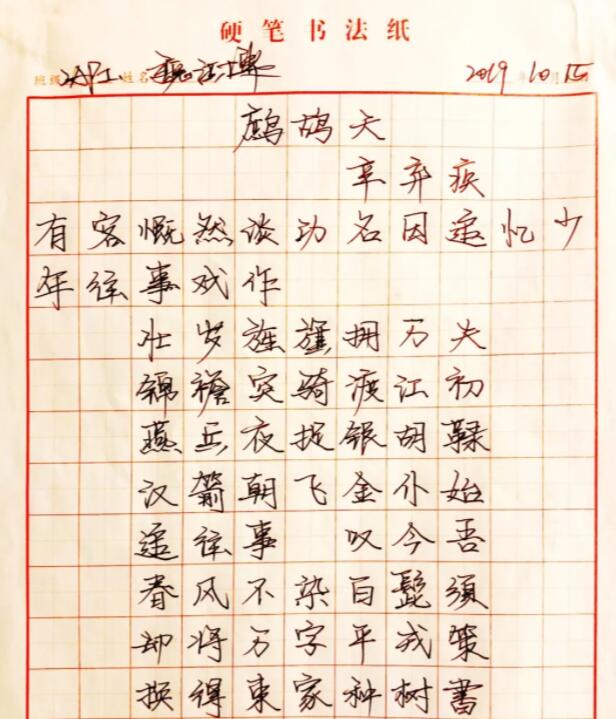 硬笔书法纸
班级 姓名 2019年10月15
鹧鸪天
辛弃疾
有客慨然谈功名因追忆少
年往事戏作
壮岁旌旗拥万夫
锦襜突骑渡江初
燕兵夜捉银胡䩮
汉箭朝飞金仆姑
追往事 叹今吾
春风不染白髭须
却将万字平戎策
换得东家种树书